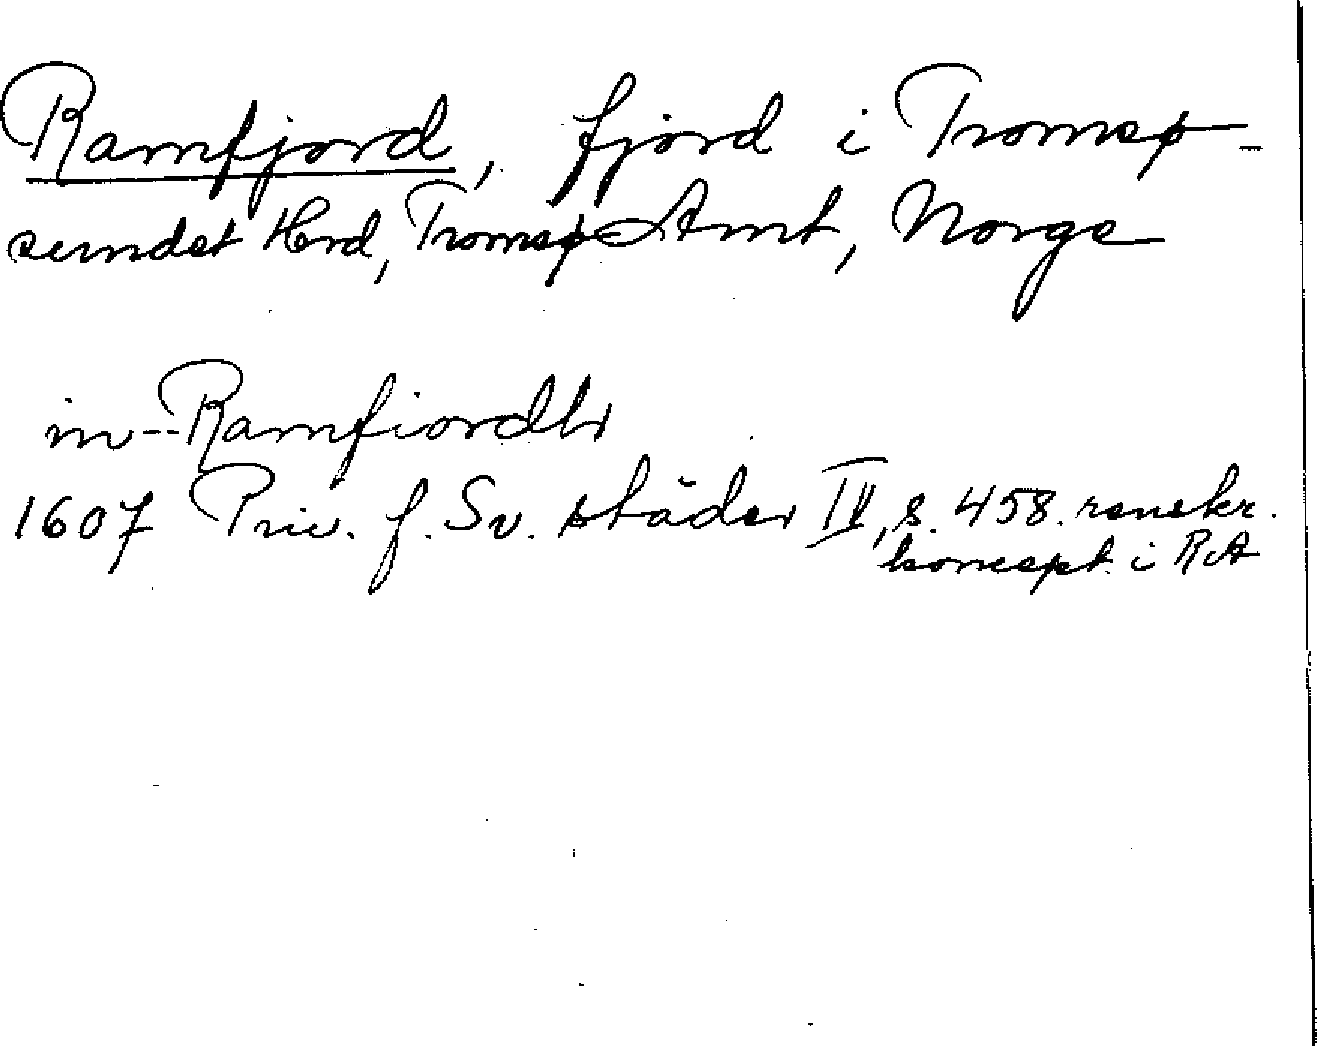 Ramfjord, fjord i Tromsø-
sundet Hrd, Tromsø Amt, Norge
in--Ramfiordh
1607 Priv. f. Sv. städer IV, s. 458. renskr.
koncept i RA